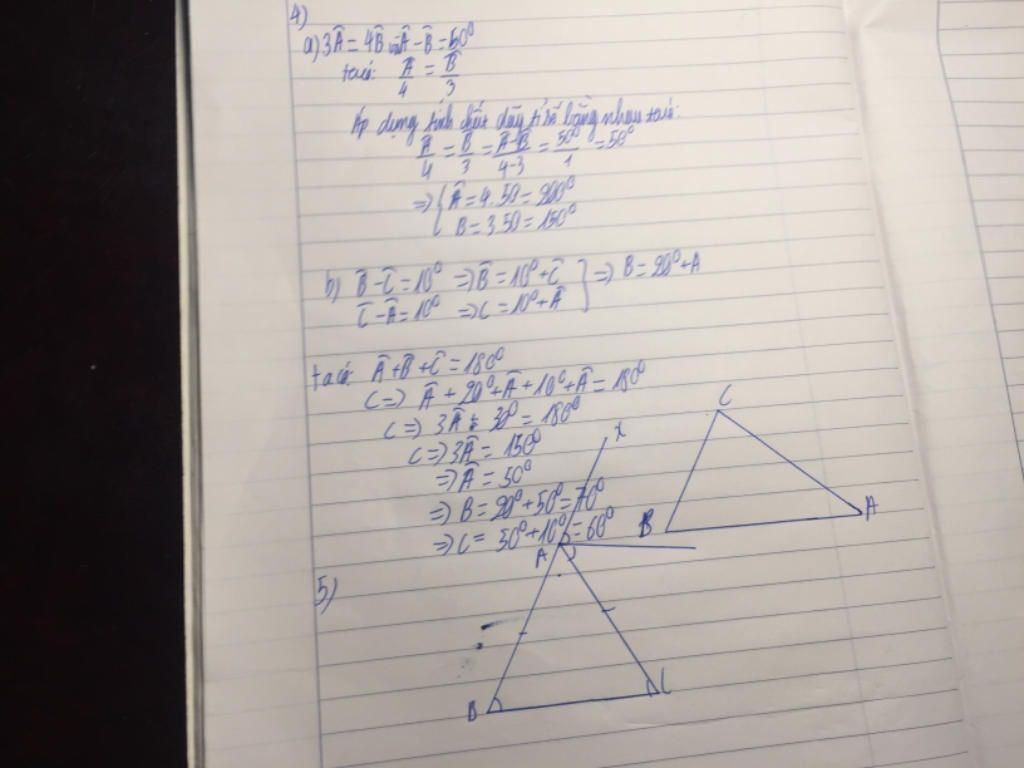 4)
a) 3Â = 4B̂ và Â - B̂ = 50⁰
ta có: Â/4 = B̂/3
Áp dụng tính chất dãy tỉ số bằng nhau ta có:
Â/4 = B̂/3 = Â-B̂/4-3 = 50⁰/1 = 50⁰
=> { Â = 4.50 = 200⁰
B = 3.50 = 150⁰
b) B̂ - Ĉ = 10⁰ => B̂ = 10⁰ + Ĉ
Ĉ - Â = 10⁰ => C = 10⁰ + Â } => B = 20⁰ + A
ta có: Â + B̂ + Ĉ = 180⁰
<=> Â + 20⁰ + Â + 10⁰ + Â = 180⁰
<=> 3Â + 30⁰ = 180⁰
<=> 3Â = 150⁰
=> Â = 50⁰
=> B = 20⁰ + 50⁰ = 70⁰
=> C = 50⁰ + 10⁰ = 60⁰
C
B
A
5)
x
A
B
C